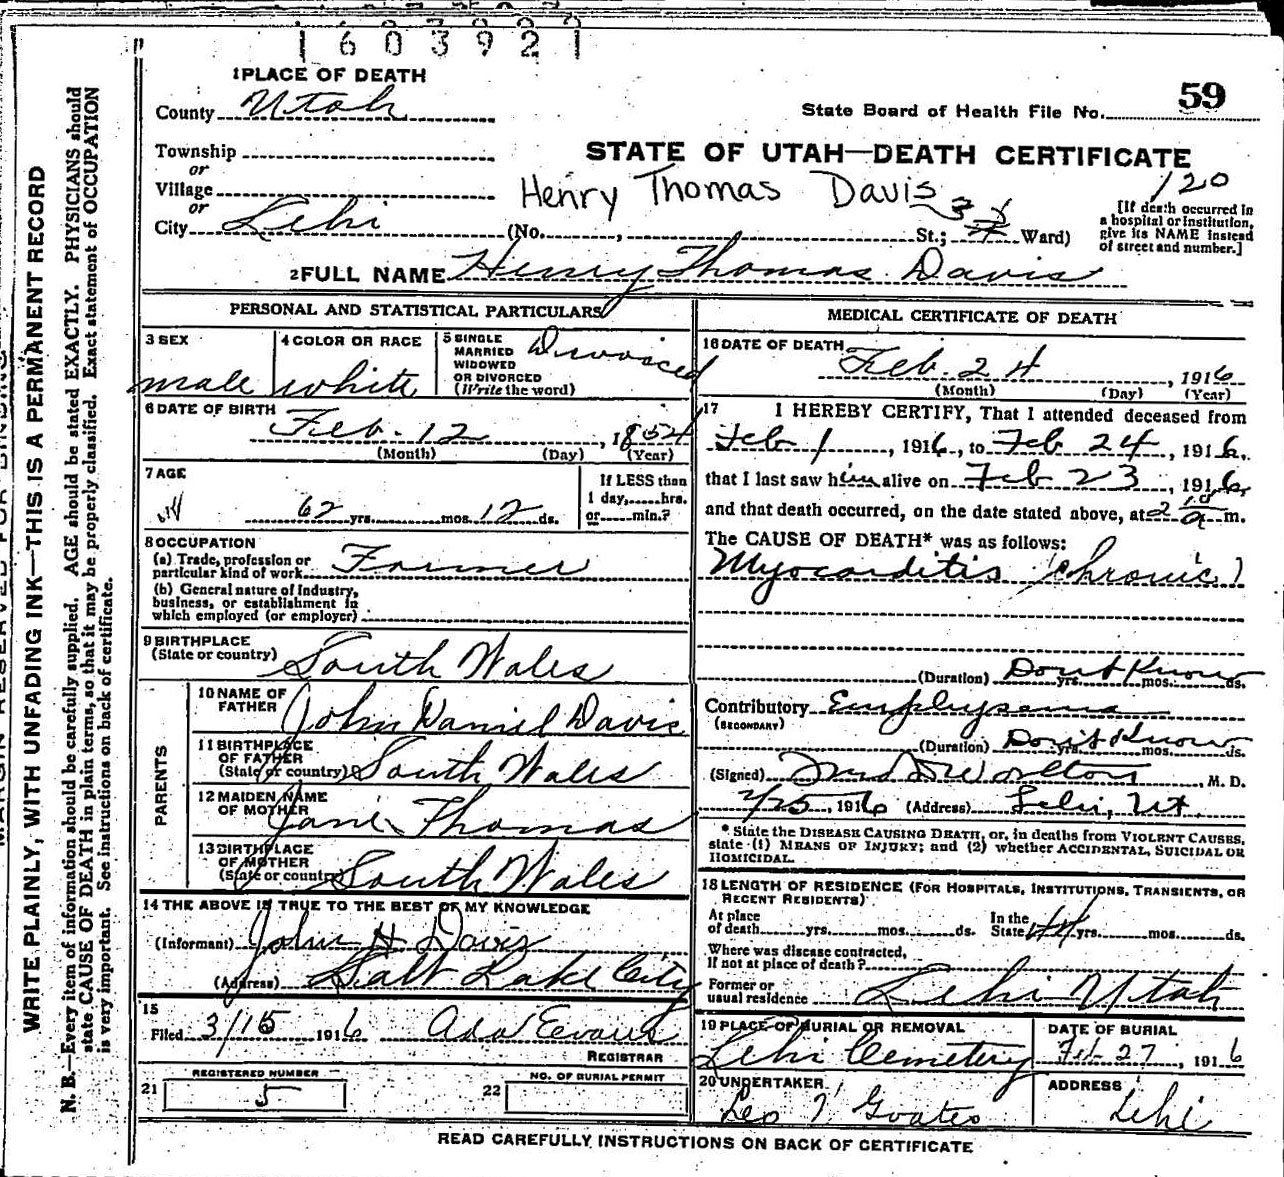 1603921
1 PLACE OF DEATH
County Utah
State Board of Health File No. 59
STATE OF UTAH—DEATH CERTIFICATE
Township
or
Village
or
City Lehi
Henry Thomas Davis
120
(No. , St.; Ward)
[If death occurred in
a hospital or institution,
give its NAME instead
of street and number.]
2 FULL NAME Henry Thomas Davis
PERSONAL AND STATISTICAL PARTICULARS
3 SEX
male
4 COLOR OR RACE
white
5 SINGLE
MARRIED
WIDOWED
OR DIVORCED
(Write the word)
Divorced
6 DATE OF BIRTH
Feb. 12, 1854
(Month) (Day) (Year)
7 AGE
62 yrs. mos. 12 ds.
If LESS than
1 day,.....hrs.
or.....min.?
8 OCCUPATION
(a) Trade, profession or
particular kind of work Farmer
(b) General nature of Industry,
business, or establishment in
which employed (or employer)
9 BIRTHPLACE
(State or country) South Wales
PARENTS
10 NAME OF
FATHER John Daniel Davis
11 BIRTHPLACE
OF FATHER
(State or country) South Wales
12 MAIDEN NAME
OF MOTHER Jane Thomas
13 BIRTHPLACE
OF MOTHER
(State or country) South Wales
14 THE ABOVE IS TRUE TO THE BEST OF MY KNOWLEDGE
(Informant) John H Davis
(Address) Salt Lake City
15
Filed 3/15 1916 Ada Eevans
REGISTRAR
21 REGISTERED NUMBER
5
22 NO. OF BURIAL PERMIT
MEDICAL CERTIFICATE OF DEATH
16 DATE OF DEATH
Feb. 24, 1916
(Month) (Day) (Year)
17 I HEREBY CERTIFY, That I attended deceased from
Feb 1, 1916, to Feb 24, 1916,
that I last saw him alive on Feb 23, 1916,
and that death occurred, on the date stated above, at 2 10 a m.
The CAUSE OF DEATH* was as follows:
Myocarditis (chronic)
(Duration) Don't Know yrs. mos. ds.
Contributory Emphysema
(SECONDARY)
(Duration) Don't Know yrs. mos. ds.
(Signed) Worlton, M. D.
2/25, 1916 (Address) Lehi, Ut.
* State the DISEASE CAUSING DEATH, or, in deaths from VIOLENT CAUSES,
state (1) MEANS OF INJURY; and (2) whether ACCIDENTAL, SUICIDAL OR
HOMICIDAL.
18 LENGTH OF RESIDENCE (FOR HOSPITALS, INSTITUTIONS, TRANSIENTS, OR
RECENT RESIDENTS)
At place
of death yrs. mos. ds.
In the
State 44 yrs. mos. ds.
Where was disease contracted,
If not at place of death?
Former or
usual residence Lehi Utah
19 PLACE OF BURIAL OR REMOVAL
Lehi Cemetery
DATE OF BURIAL
Feb 27, 1916
20 UNDERTAKER
Leo T Goates
ADDRESS
Lehi
READ CAREFULLY INSTRUCTIONS ON BACK OF CERTIFICATE
MARGIN RESERVED FOR BINDING
WRITE PLAINLY, WITH UNFADING INK—THIS IS A PERMANENT RECORD
N. B.—Every item of information should be carefully supplied. AGE should be stated EXACTLY. PHYSICIANS should
state CAUSE OF DEATH in plain terms, so that it may be properly classified. Exact statement of OCCUPATION
is very important. See instructions on back of certificate.